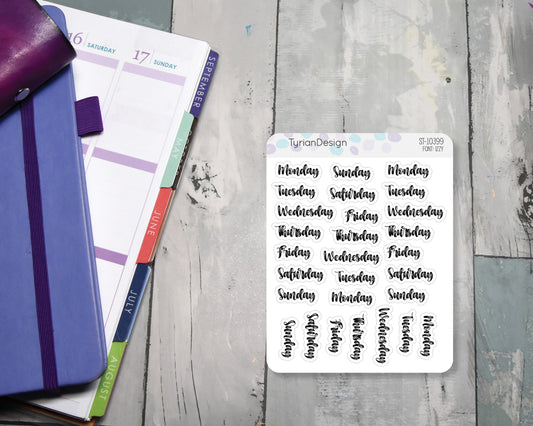 16 SATURDAY
17 SUNDAY
SEPTEMBER
MAY
JUNE
JULY
AUGUST
TyrianDesign
ST-10399
FONT: IZZY
Monday Sunday Monday
Tuesday Saturday Tuesday
Wednesday Friday Wednesday
Thursday Thursday Thursday
Friday Wednesday Friday
Saturday Tuesday Saturday
Sunday Monday Sunday
Sunday Saturday Friday Thursday Wednesday Tuesday Monday